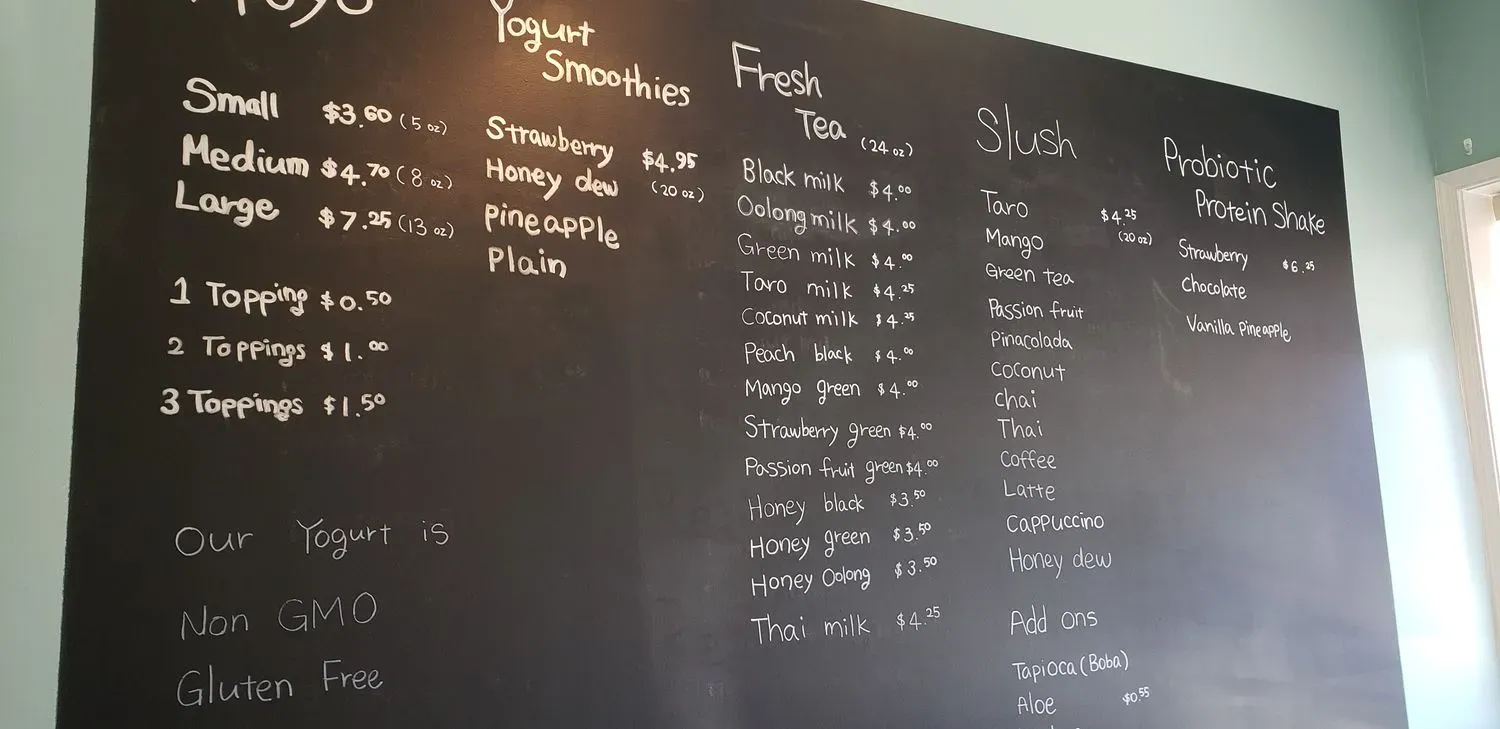 Yogurt
Smoothies
Small $3.60 (5 oz)
Medium $4.70 (8 oz)
Large $7.25 (13 oz)
1 Topping $0.50
2 Toppings $1.00
3 Toppings $1.50
Our Yogurt is
Non GMO
Gluten Free
Strawberry $4.95
Honey dew (20 oz)
Pineapple
Plain
Fresh
Tea (24 oz)
Black milk $4.00
Oolong milk $4.00
Green milk $4.00
Taro milk $4.25
Coconut milk $4.25
Peach black $4.00
Mango green $4.00
Strawberry green $4.00
Passion fruit green $4.00
Honey black $3.50
Honey green $3.50
Honey Oolong $3.50
Thai milk $4.25
Slush
Taro $4.25
Mango (20 oz)
Green tea
Passion fruit
Pinacolada
Coconut
Chai
Thai
Coffee
Latte
Cappuccino
Honey dew
Add ons
Tapioca (Boba)
Aloe $0.55
Probiotic
Protein Shake
Strawberry $6.25
Chocolate
Vanilla Pineapple